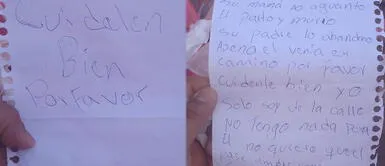 Cuidelen
Bien
Porfavor
Su mamá no aguanto
El parto y murio
Su padre lo abandono
el venia en
camino por favor
Cuidente bien yo
Solo soy de la calle
No Tengo nada Pera
El no quiero que el